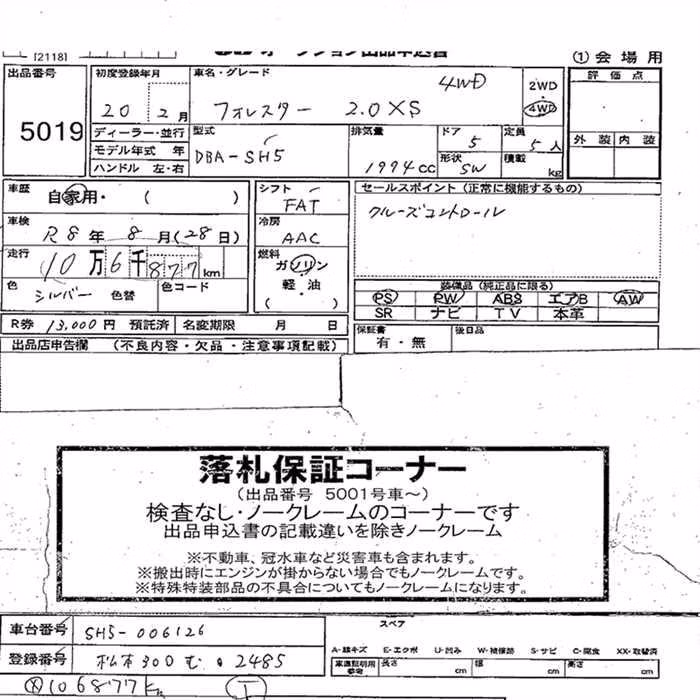 [2118]
オークション出品申込書
① 会場用
出品番号 5019
初度登録年月 20 2月
車名・グレード フォレスター 2.0XS 4WD
2WD
4WD
評価点
外装 内装
ディーラー・並行
モデル年式 年
ハンドル 左・右
型式 DBA-SH5
排気量 1994cc
ドア 5
形状 SW
定員 5人
積載 kg
車歴 自家用・( )
車検 R8年 8月(28日)
走行 10万6千877km
色 シルバー 色替
色コード
シフト FAT
冷房 AAC
燃料
ガソリン
軽・油
( ・ )
セールスポイント (正常に機能するもの)
クルーズコントロール
装備品 (純正品に限る)
PS PW ABS エアB AW
SR ナビ TV 本革
R券 13,000円 預託済
名変期限 月 日
保証書 有・無
後日品
出品店申告欄 (不良内容・欠品・注意事項記載)
落札保証コーナー
(出品番号 5001号車~)
検査なし・ノークレームのコーナーです
出品申込書の記載違いを除きノークレーム
※不動車、冠水車など災害車も含まれます。
※搬出時にエンジンが掛からない場合でもノークレームです。
※特殊特装部品の不具合についてもノークレームになります。
車台番号 SH5-006126
スペア
登録番号 松本300む・2485
A-線キズ E-エクボ U-凹み W-補修跡 S-サビ C-腐食 XX-取替済
車庫証明用参考 長さ cm 幅 cm 高さ cm
106877km